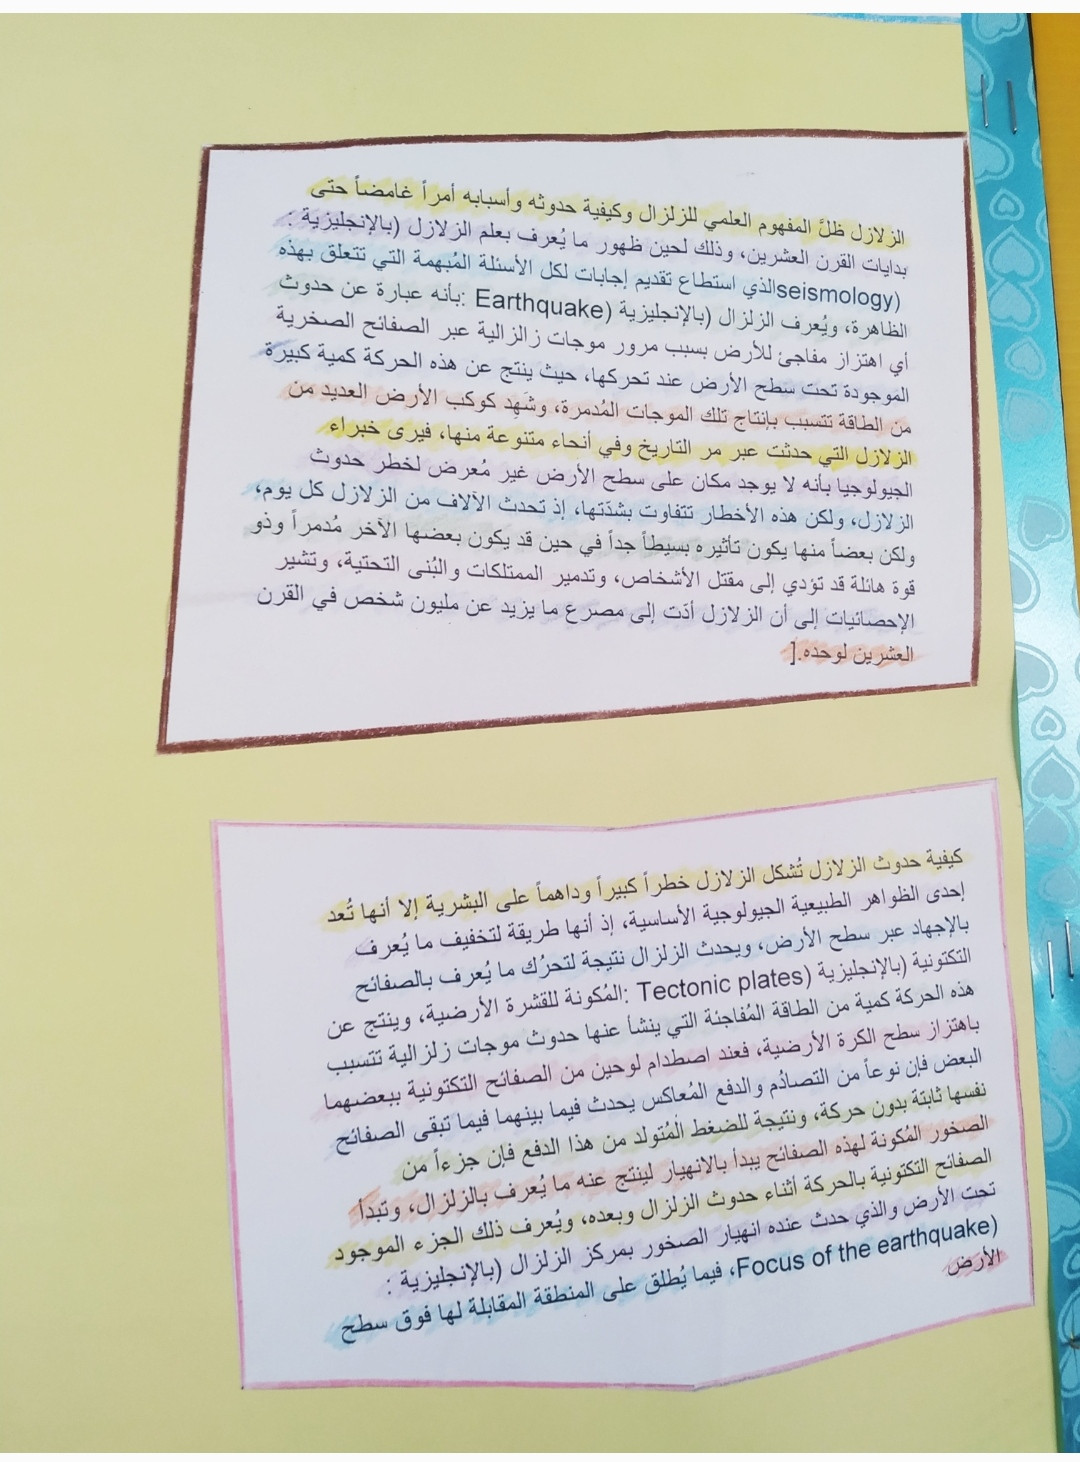 الزلازل ظلَّ المفهوم العلمي للزلزال وكيفية حدوثه وأسبابه أمراً غامضاً حتى
بدايات القرن العشرين، وذلك لحين ظهور ما يُعرف بعلم الزلازل (بالإنجليزية :
(seismologyالذي استطاع تقديم إجابات لكل الأسئلة المُبهمة التي تتعلق بهذه
الظاهرة، ويُعرف الزلزال (بالإنجليزية (Earthquake :بأنه عبارة عن حدوث
أي اهتزاز مفاجئ للأرض بسبب مرور موجات زلزالية عبر الصفائح الصخرية
الموجودة تحت سطح الأرض عند تحركها، حيث ينتج عن هذه الحركة كمية كبيرة
من الطاقة تتسبب بإنتاج تلك الموجات المُدمرة، وشَهِد كوكب الأرض العديد من
الزلازل التي حدثت عبر مر التاريخ وفي أنحاء متنوعة منها، فيرى خبراء
الجيولوجيا بأنه لا يوجد مكان على سطح الأرض غير مُعرض لخطر حدوث
الزلازل، ولكن هذه الأخطار تتفاوت بشدّتها، إذ تحدث الآلاف من الزلازل كل يوم،
ولكن بعضاً منها يكون تأثيره بسيطاً جداً في حين قد يكون بعضها الآخر مُدمراً وذو
قوة هائلة قد تؤدي إلى مقتل الأشخاص، وتدمير الممتلكات والبُنى التحتية، وتشير
الإحصائيات إلى أن الزلازل أدّت إلى مصرع ما يزيد عن مليون شخص في القرن
العشرين لوحده.[
كيفية حدوث الزلازل تُشكل الزلازل خطراً كبيراً وداهماً على البشرية إلا أنها تُعد
إحدى الظواهر الطبيعية الجيولوجية الأساسية، إذ أنها طريقة لتخفيف ما يُعرف
بالإجهاد عبر سطح الأرض، ويحدث الزلزال نتيجة لتحرُك ما يُعرف بالصفائح
التكتونية (بالإنجليزية (Tectonic plates :المُكونة للقشرة الأرضية، وينتج عن
هذه الحركة كمية من الطاقة المُفاجئة التي ينشأ عنها حدوث موجات زلزالية تتسبب
باهتزاز سطح الكرة الأرضية، فعند اصطدام لوحين من الصفائح التكتونية ببعضهما
البعض فإن نوعاً من التصادُم والدفع المُعاكس يحدث فيما بينهما فيما تبقى الصفائح
نفسها ثابتة بدون حركة، ونتيجة للضغط المُتولد من هذا الدفع فإن جزءاً من
الصخور المُكونة لهذه الصفائح يبدأ بالانهيار لينتج عنه ما يُعرف بالزلزال، وتبدأ
الصفائح التكتونية بالحركة أثناء حدوث الزلزال وبعده، ويُعرف ذلك الجزء الموجود
تحت الأرض والذي حدث عنده انهيار الصخور بمركز الزلزال (بالإنجليزية :
(Focus of the earthquake، فيما يُطلق على المنطقة المقابلة لها فوق سطح
الأرض